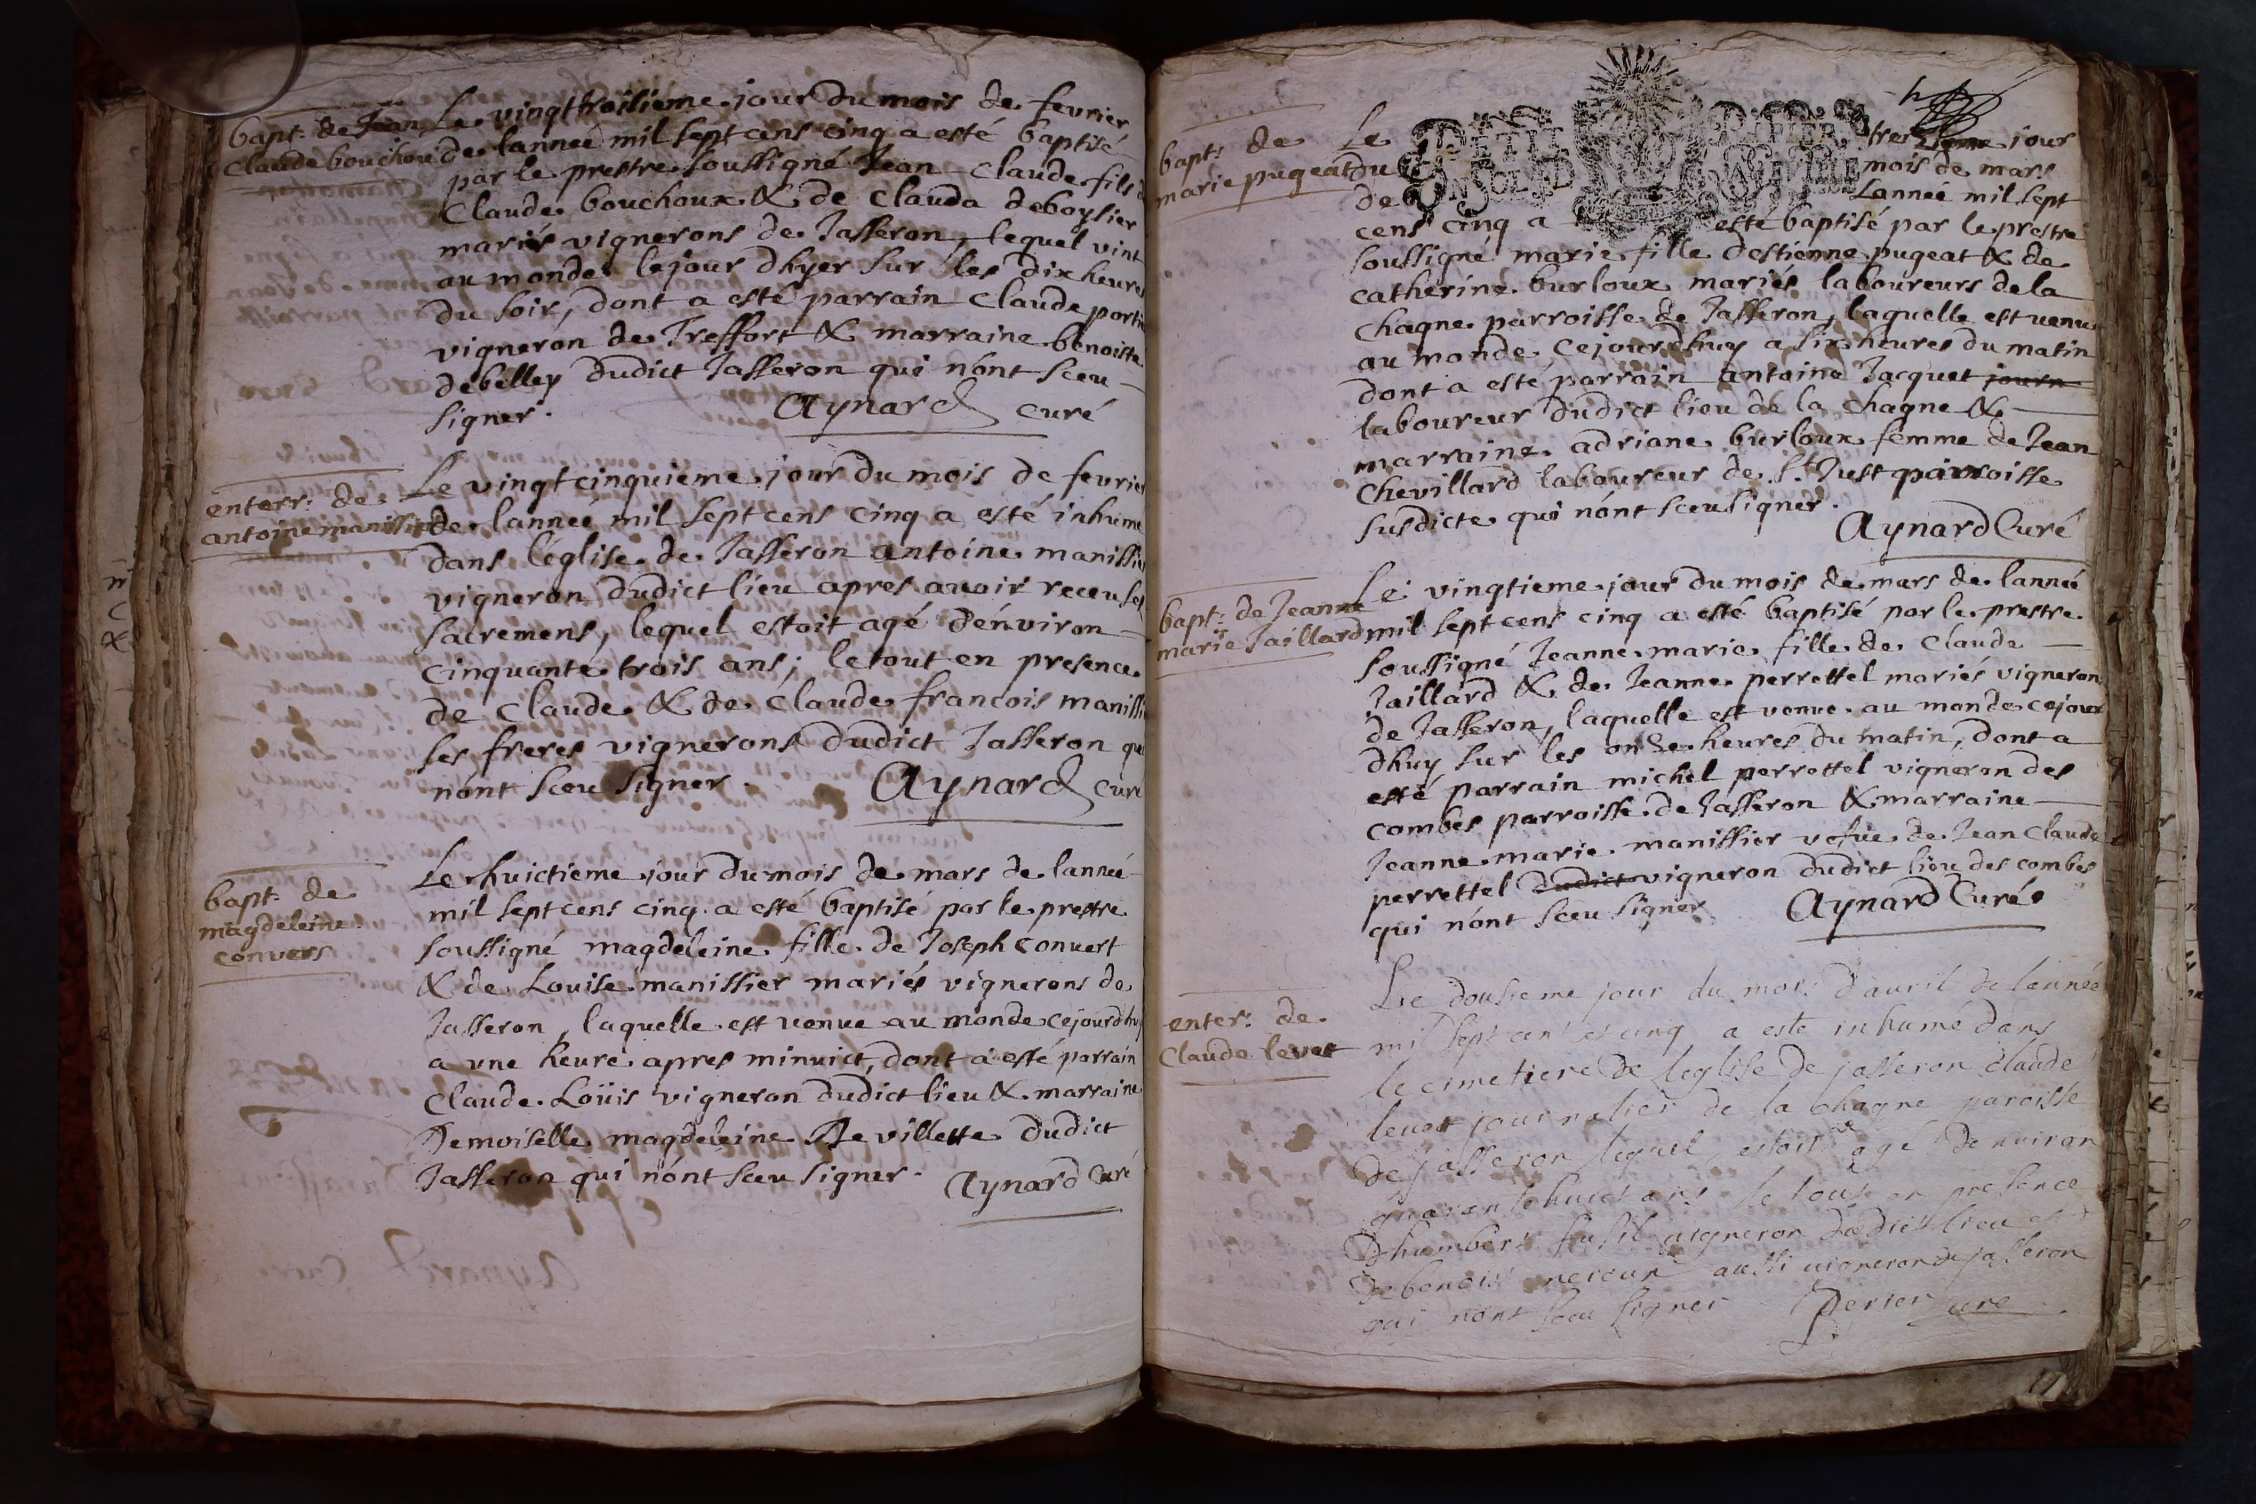 bapt: de Jean
Claude bouchou
Le vingt troisieme jour du mois de fevrier
de lanneé mil sept cens cinq a esté baptisé
par le prestre soussigné Jean Claude fils de
Claude bouchoux & de Clauda deboysier
mariés vignerons de Jasseron, lequel vint
au monde le jour dhyer sur les dix heures
du soir, dont a esté parrain Claude
vigneron de Treffort & marraine benoiste
debelley dudict Jasseron qui nónt sceu
signer.
Aynard curé
enterr: de
antoine manissier
Le vingt cinquieme jour du mois de fevrier
de lanneé mil sept cens cinq a esté inhumé
dans léglise de Jasseron antoine manissier
vigneron dudict lieu apres avoir receu ses
sacremens, lequel estoit agé dénviron
cinquante trois ans; le tout en presence
de Claude & de Claude francois manissier
ses freres vignerons dudict Jasseron qui
nónt sceu signer.
Aynard curé
bapt: de
magdeleine
convers
Le huictieme jour du mois de mars de lanneé
mil sept cens cinq a esté baptisé par le prestre
soussigné magdeleine fille de Joseph convert
& de Louise manissier mariés vignerons de
Jasseron, laquelle est venue au monde cejourdhuy
a une heure apres minuict, dont a esté parrain
Claude Loüis vigneron dudict lieu & marraine
Demoiselle magdeleine De villette dudict
Jasseron qui nónt sceu signer.
Aynard Curé
bapt: de
marie pugeat
Le treziéme jour
du mois de mars
de Lanneé mil sept
cens cinq a esté baptisé par le prestre
soussigné marie fille destienne pugeat & de
catherine burloux mariés laboureurs de la
chagne parroisse de Jasseron, laquelle est venue
au monde cejourdhuy a six heures du matin
dont a esté parrain antoine Jacquet journ
laboureur dudict lieu de la chagne &
marraine adriane burloux femme de Jean
Chevillard laboureur de St Just parroisse
susdicte qui nónt sceu signer.
Aynard Curé
bapt: de Jeanne
marie Jaillard
Le vingtieme jour du mois de mars de lanneé
mil sept cens cinq a esté baptisé par le prestre
soussigné Jeanne marie fille de Claude
Jaillard & de Jeanne perrettel mariés vignerons
de Jasseron, laquelle est venue au monde cejour
dhuy sur les onze heures du matin, dont a
esté parrain michel perrettel vigneron des
combes parroisse de Jasseron & marraine
Jeanne marie manissier vefue de Jean Claude
perrettel dudict vigneron dudict lieu des combes
qui nónt sceu signer.
Aynard Curé
enter: de
Claude levet
Le dousieme jour du mois d'avril de lannée
mil sept cent et cinq a este inhumé dans
le cimetiere de leglise de jasseron claude
levet journalier de la Chagne paroisse
de jasseron lequel estoit agé denviron
quarante huict ans le tout en presence
Dhumbert vigneron dudict lieu et
de benoist aussi vigneron de jasseron
qui nont sceu signer Perier curé